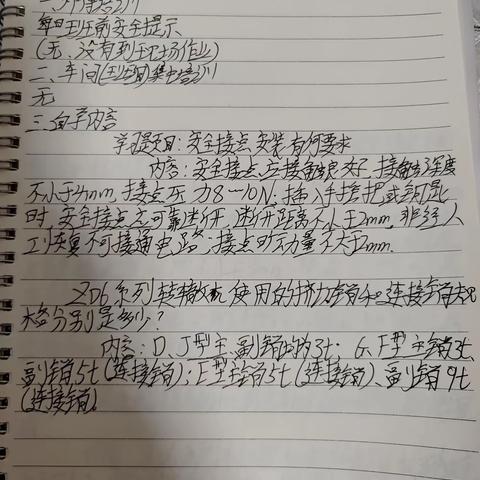 每日班前安全提示
(无、没有到现场作业)
二、车间(班组)集中培训
无
三、自学内容
学习题目:安全接点安装有何要求
内容:安全接点应接触良好、接触深度
不小于4mm,接点压力8-10N,插入手摇把或钥匙
时,安全接点应可靠断开,断开距离不小于2mm,非经人
工恢复不可接通电路;接点 量不大于2mm.
ZD6系列转辙机使用的挤切销和连接销规
格分别是多少?
内容:D、J型主、副销均为3t. G、F型主销3t、
副销5t(连接销);E型主销5t(连接销)、副销9t
(连接销)